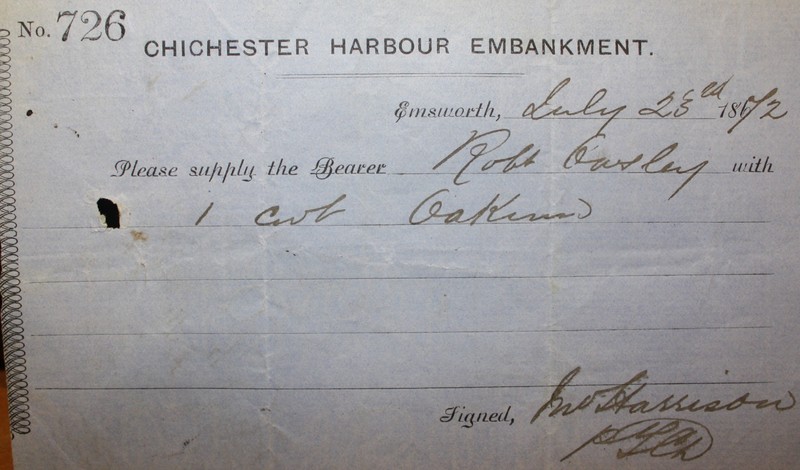 No. 726
CHICHESTER HARBOUR EMBANKMENT.
Emsworth, July 23rd 1872
Please supply the Bearer Robt Owsley with
1 cwt Oakum
Signed, Jno Harrison